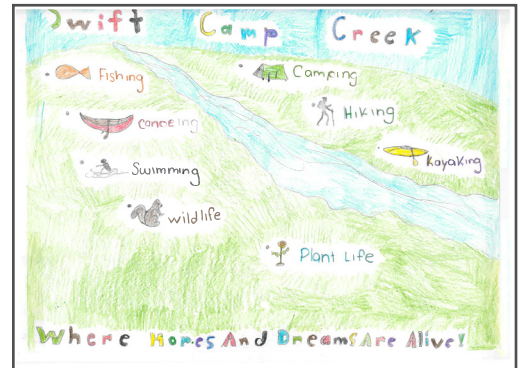 Swift Camp Creek
Fishing
Camping
Canoeing
Hiking
Swimming
Kayaking
wildlife
Plant Life
Where Hopes And Dreams Are Alive!